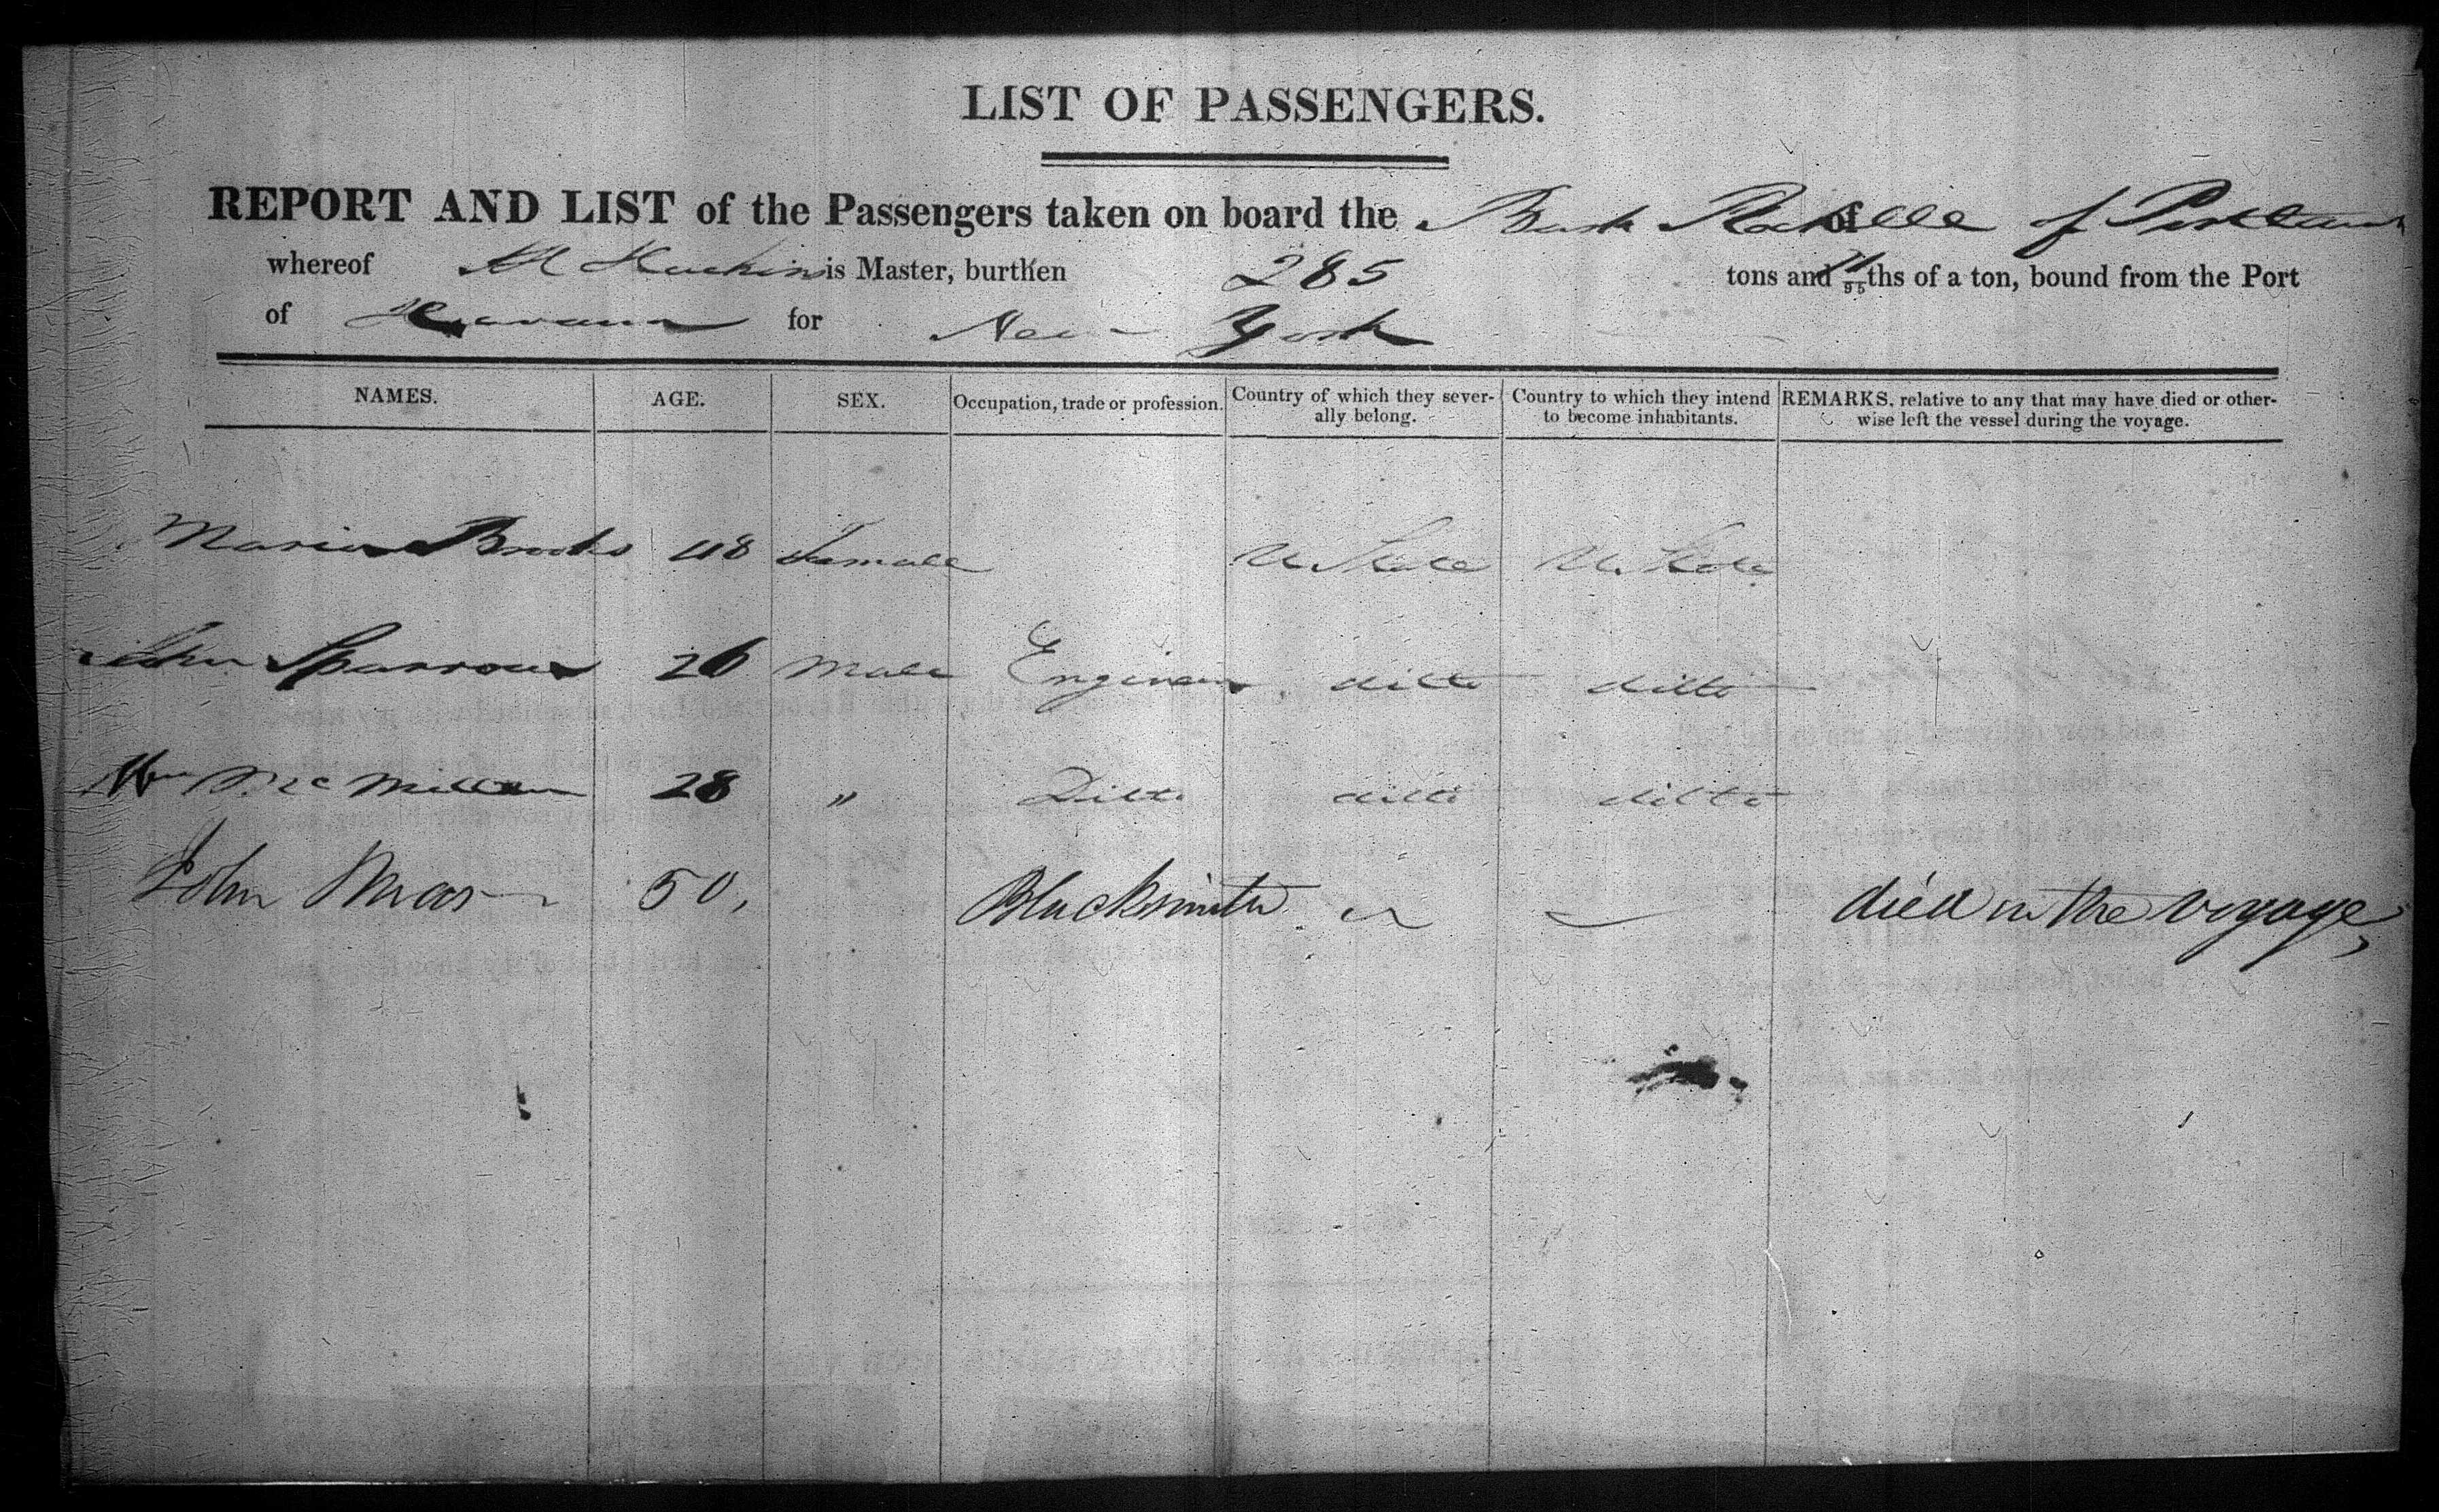 LIST OF PASSENGERS.
REPORT AND LIST of the Passengers taken on board the Bark of of Portland
whereof is Master, burthen 285 tons and /95ths of a ton, bound from the Port
of Havana for New York
NAMES. AGE. SEX. Occupation, trade or profession. Country of which they severally belong. Country to which they intend to become inhabitants. REMARKS, relative to any that may have died or otherwise left the vessel during the voyage.
Maria Brooks 48 Female U State U. State
John Sparrow 26 Male Engineer ditto ditto
Wm McMillan 28 " Ditto ditto ditto
John 50, Blacksmith died on the voyage,